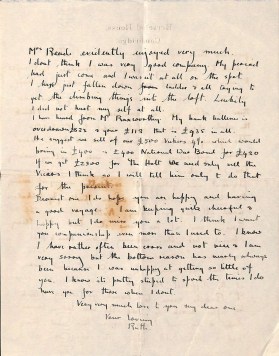 Mrs Read evidently enjoyed very much.
I dont think I was very good company. My period
had just come and I wasnt at all on the spot.
I had just fallen down from ladder & all trying to
get the climbing things into the loft. Luckily
I did not hurt my self at all.
I have heard from Mr My bank balance is
overdrawn £823 & your £112 that is £935 in all.
He suggest we sell of our £500 Vickers 5% which would
bring in £400 - £400 National War Bond for £420
If we get £2300 for The Holt we need only sell the
Vickers I think so I will tell him only to do that
for the present.
Dearest one I do hope you are happy and having
a good voyage. I am keeping quite cheerful &
happy but I do miss you a lot. I think I want
you companionship even more than I used to. I know
I have rather often been cross and not nice & I am
very sorry but the bottom reason has nearly always
been because I was unhappy at getting so little of
you. I know it's pretty stupid to spoil the times I do
have you for those when I dont
Very very much love to you my dear one
Your loving
Ruth